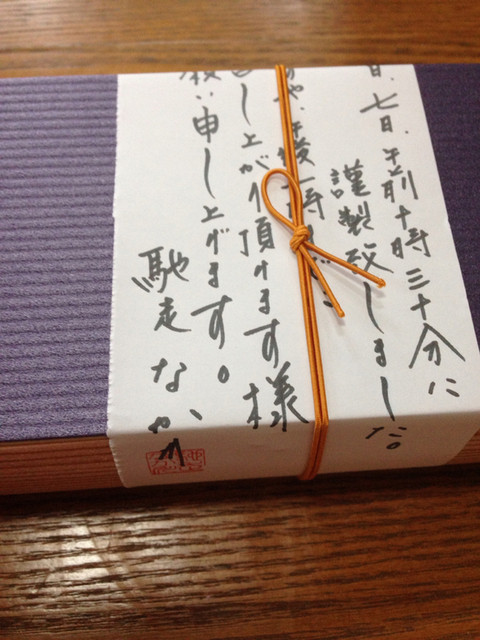 日、七日、午前十時三十分に
謹製致しました。
や、午後一時
し上がり頂けます様
願い申し上げます。
馳走 なか川